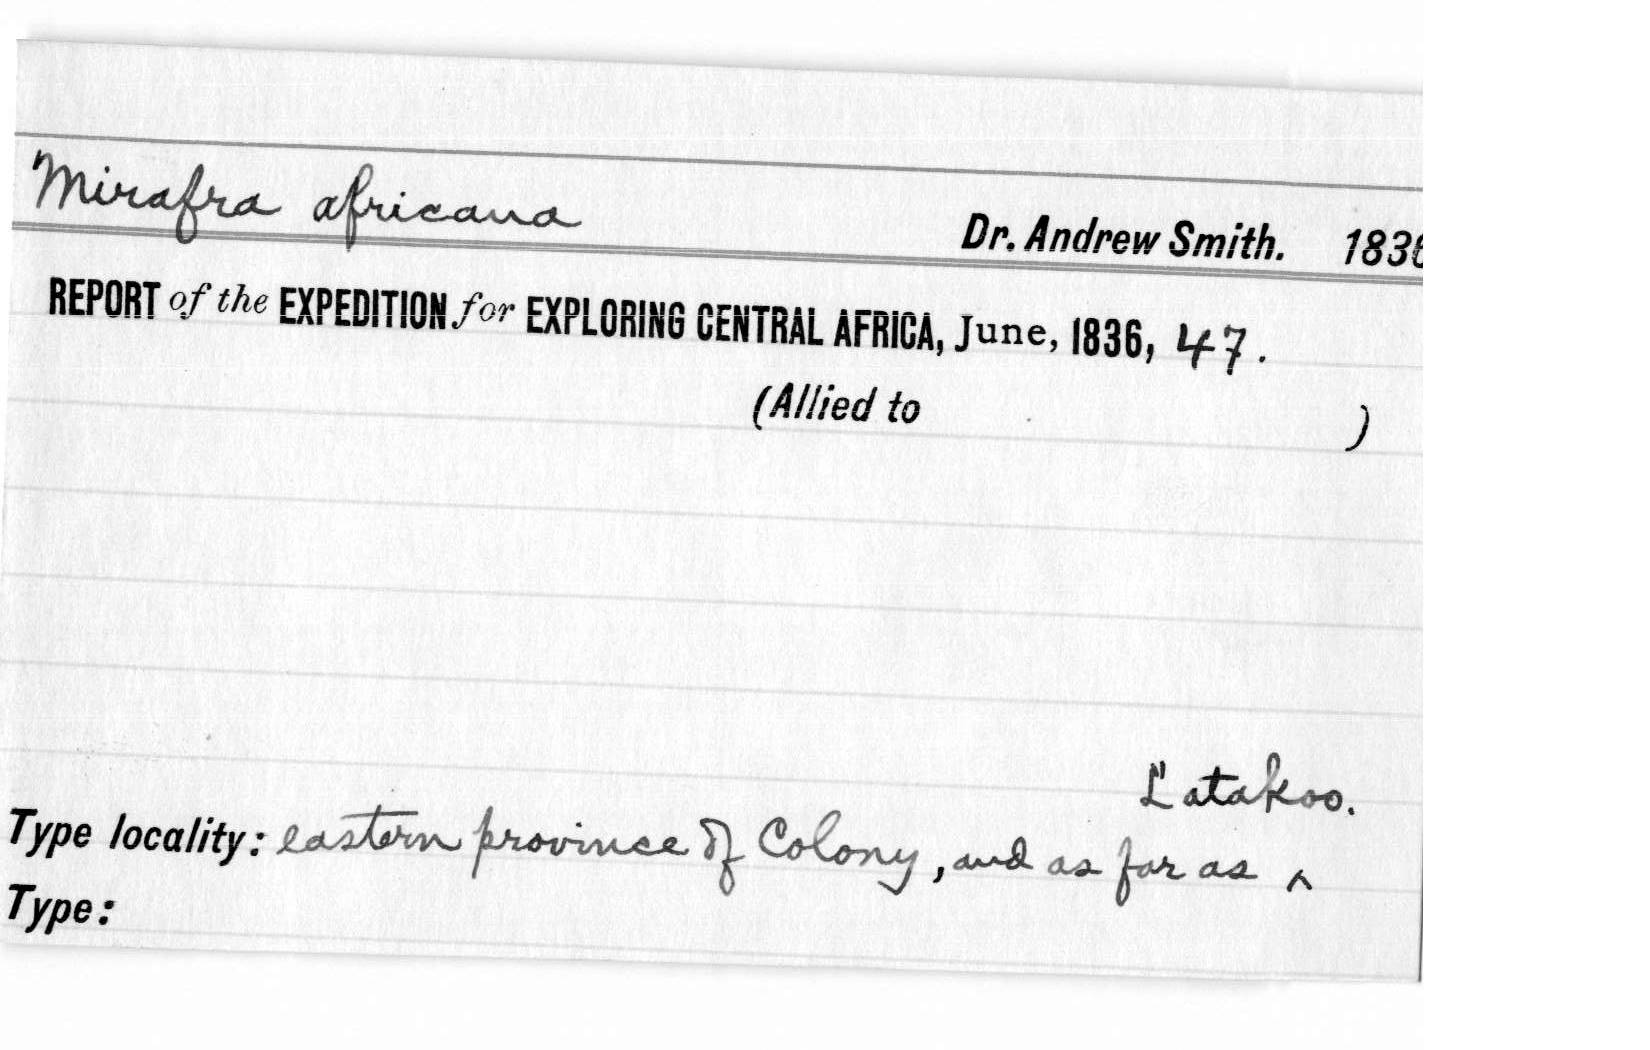 Mirafra africana
Dr. Andrew Smith. 1836
REPORT of the EXPEDITION for EXPLORING CENTRAL AFRICA, June, 1836, 47.
(Allied to )
Latakoo.
Type locality: eastern province of Colony, and as far as ^
Type: